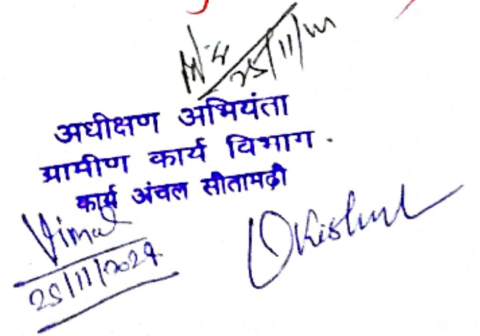 25/11/
अधीक्षण अभियंता
ग्रामीण कार्य विभाग.
कार्य अंचल सीतामढ़ी
Vimal
25/11/2024